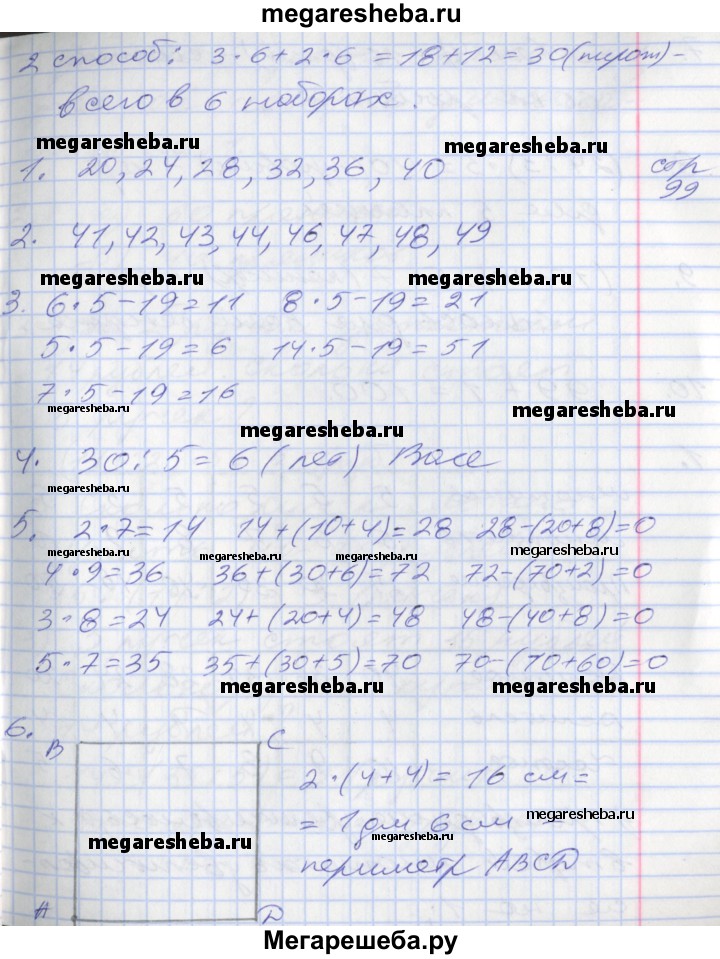 megaresheba.ru
2 способ: 3·6+2·6 =18+12=30(пирож)-
всего в 6 наборах.
megaresheba.ru megaresheba.ru
1. 20, 24, 28, 32, 36, 40 стр 99
2. 41, 42, 43, 44, 46, 47, 48, 49
megaresheba.ru megaresheba.ru
3. 6·5-19=11 8·5-19=21
5·5-19=6 14·5-19=51
7·5-19=16
megaresheba.ru megaresheba.ru
megaresheba.ru
4. 30:5=6 (лет) Васе
megaresheba.ru
5. 2·7=14 14+(10+4)=28 28-(20+8)=0
megaresheba.ru megaresheba.ru megaresheba.ru megaresheba.ru
4·9=36 36+(30+6)=72 72-(70+2)=0
3·8=24 24+(20+4)=48 48-(40+8)=0
5·7=35 35+(30+5)=70 70-(10+60)=0
megaresheba.ru megaresheba.ru
6. B C
2·(4+4)=16 см=
megaresheba.ru
=1дм 6см =
megaresheba.ru megaresheba.ru
периметр ABCD
A D
Мегарешеба.ру